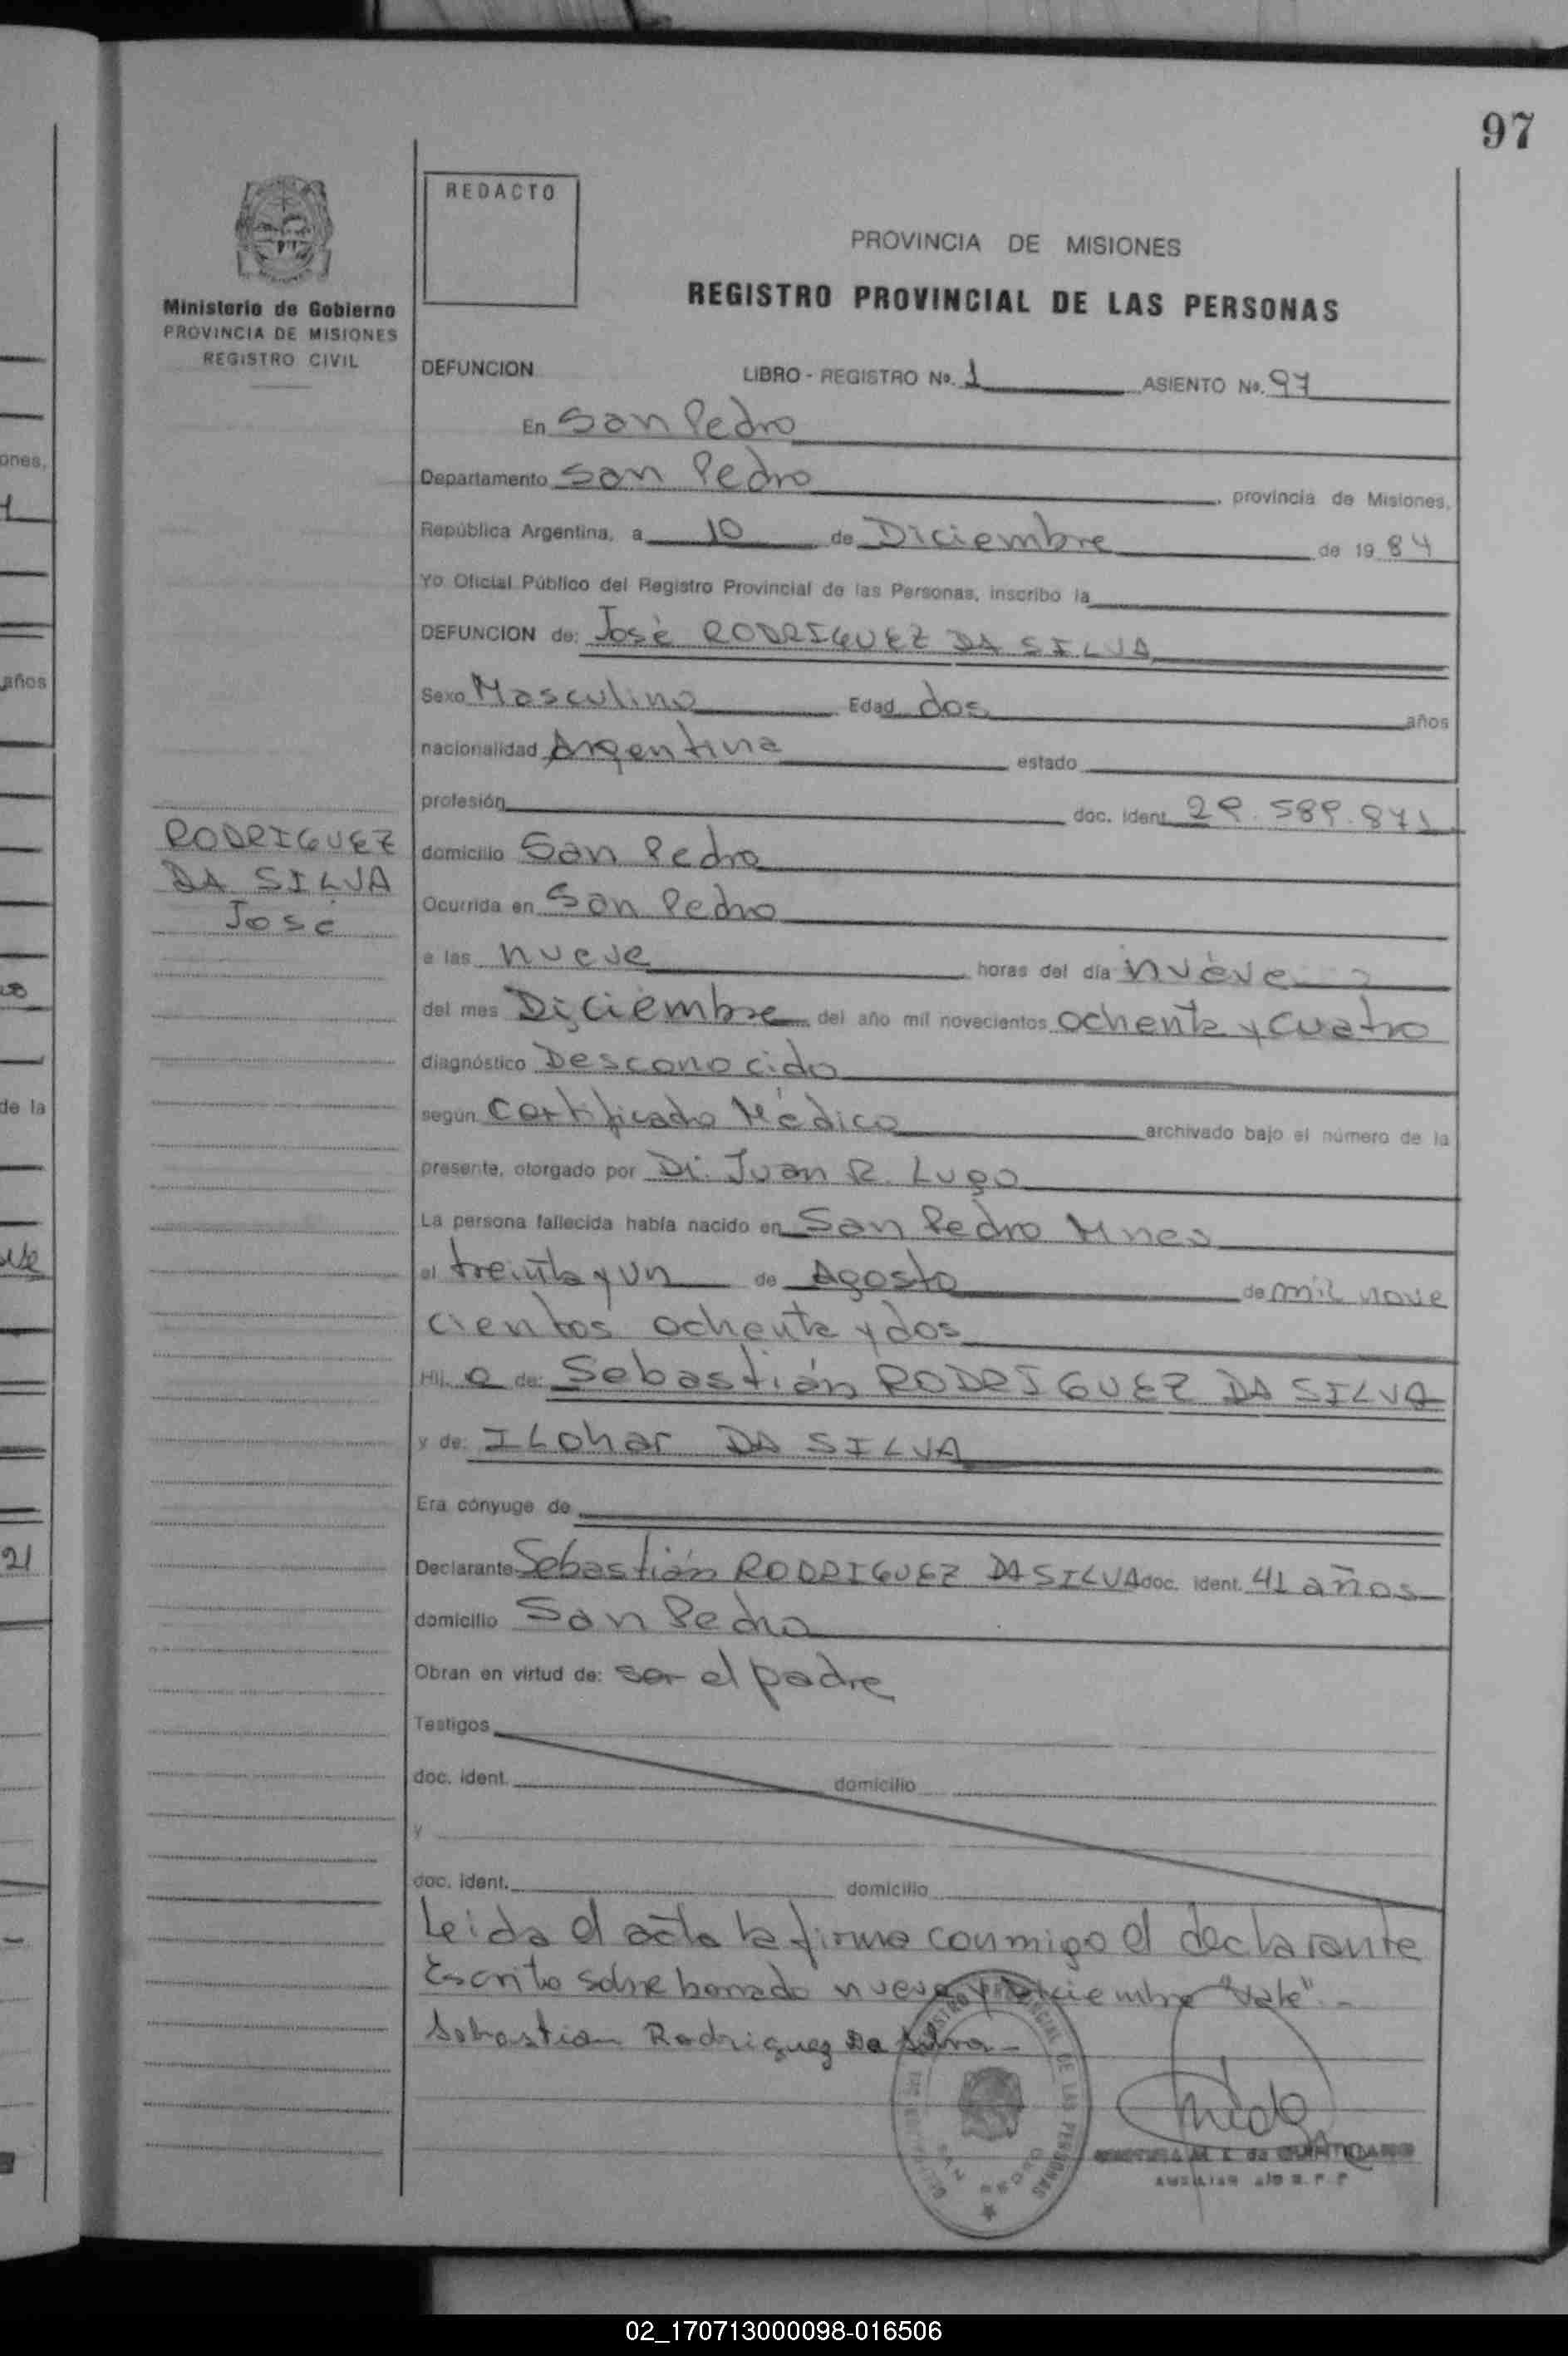 97
REDACTO
PROVINCIA DE MISIONES
REGISTRO PROVINCIAL DE LAS PERSONAS
Ministerio de Gobierno
PROVINCIA DE MISIONES
REGISTRO CIVIL
DEFUNCION LIBRO - REGISTRO No. 1 ASIENTO No. 97
En San Pedro
Departamento San Pedro, provincia de Misiones,
República Argentina, a 10 de Diciembre de 1984
Yo Oficial Público del Registro Provincial de las Personas, inscribo la
DEFUNCION de: José RODRIGUEZ DA SILVA
Sexo Masculino Edad dos años
nacionalidad Argentina estado
profesión doc. ident. 29.589.871
RODRIGUEZ
DA SILVA
José
domicilio San Pedro
Ocurrida en San Pedro
a las nueve horas del día nueve
del mes Diciembre del año mil novecientos ochenta y cuatro
diagnóstico Desconocido
según Certificado Médico archivado bajo el número de la
presente, otorgado por Dr. Juan R. Lugo
La persona fallecida había nacido en San Pedro Mnes
el treinta y un de Agosto de mil nove
cientos ochenta y dos
Hij o de: Sebastián RODRIGUEZ DA SILVA
y de: ILohar DA SILVA
Era cónyuge de
Declarante Sebastián RODRIGUEZ DA SILVA doc. ident. 41 años
domicilio San Pedro
Obran en virtud de: ser el padre
Testigos
doc. ident. domicilio
y
doc. ident. domicilio
Leida el acta la firma conmigo el declarante
Escrito sobre borrado nueve y Diciembre "Vale".-
Sebastian Rodriguez Da Silva-
ones,
años
de la
21
02_170713000098-016506